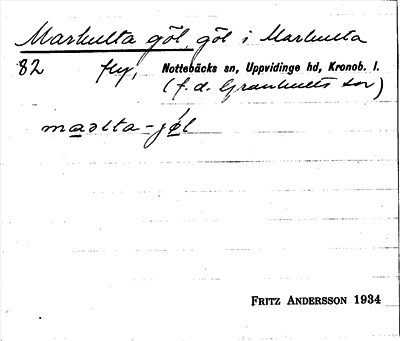 Markulta göl, göl i Markulta
82 fly, Nottebäcks sn, Uppvidinge hd, Kronob. l.
(f.d. Granhults sn)
maəlta-jøl
FRITZ ANDERSSON 1934